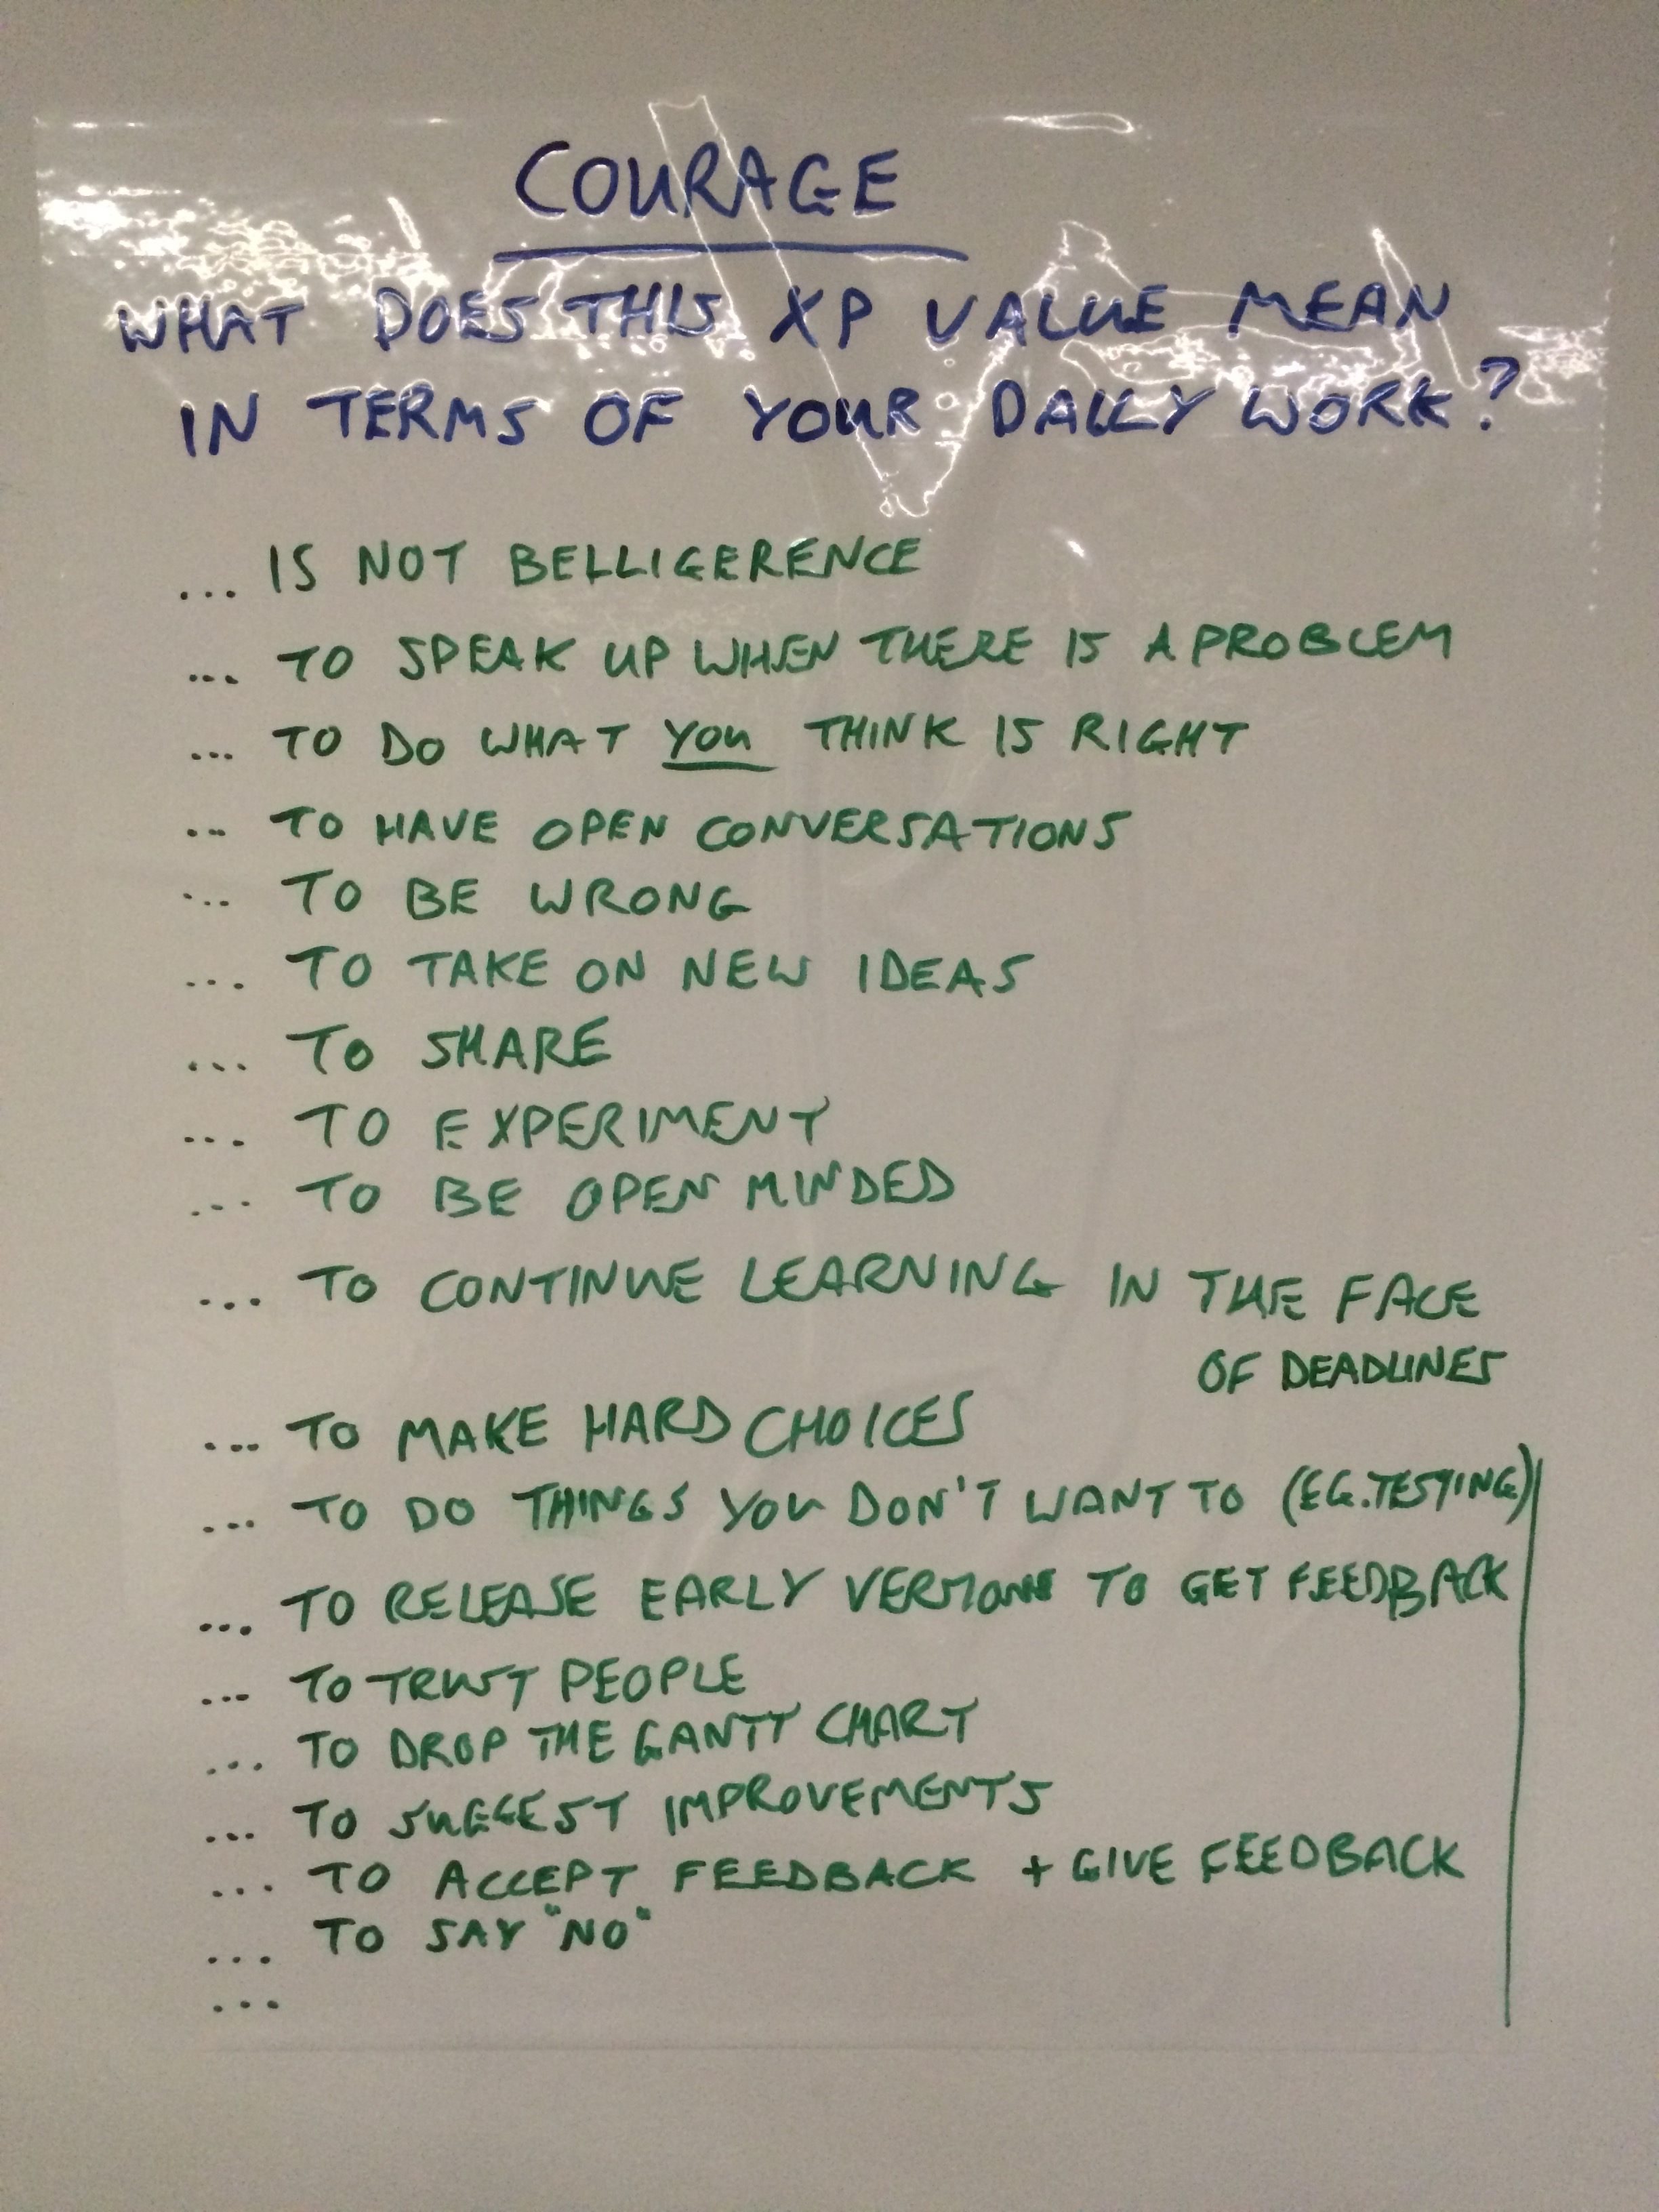 COURAGE
WHAT DOES THIS XP VALUE MEAN
IN TERMS OF YOUR DAILY WORK?
... IS NOT BELLIGERENCE
... TO SPEAK UP WHEN THERE IS A PROBLEM
... TO DO WHAT YOU THINK IS RIGHT
... TO HAVE OPEN CONVERSATIONS
... TO BE WRONG
... TO TAKE ON NEW IDEAS
... TO SHARE
... TO EXPERIMENT
... TO BE OPEN MINDED
... TO CONTINUE LEARNING IN THE FACE
OF DEADLINES
... TO MAKE HARD CHOICES
... TO DO THINGS YOU DON'T WANT TO (EG. TESTING)
... TO RELEASE EARLY VERSIONS TO GET FEEDBACK
... TO TRUST PEOPLE
... TO DROP THE GANTT CHART
... TO SUGGEST IMPROVEMENTS
... TO ACCEPT FEEDBACK + GIVE FEEDBACK
... TO SAY "NO"
...